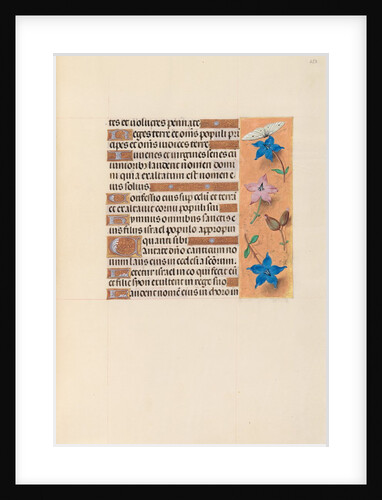 tes et volucres pennate
Reges terre et om̄s populi pri
apes et om̄s iudices terre
Iuvenes et virgines senes cū
iunioribus laudent nomen do
mi quia exaltatum est nomen e
ius solius
Confessio eius sup celū et terrā
et exaltavit cornu populi sui
Himnus omnibus sanctis e
ius filiis israel populo appropin
quanti sibi
Cantate dn̄o canticum no
vum laus eius in ecclesia scōrum
Letetur israel in eo qui fecit eū
et filie syon exultent in rege suo
Laudent nomē eius in choro in